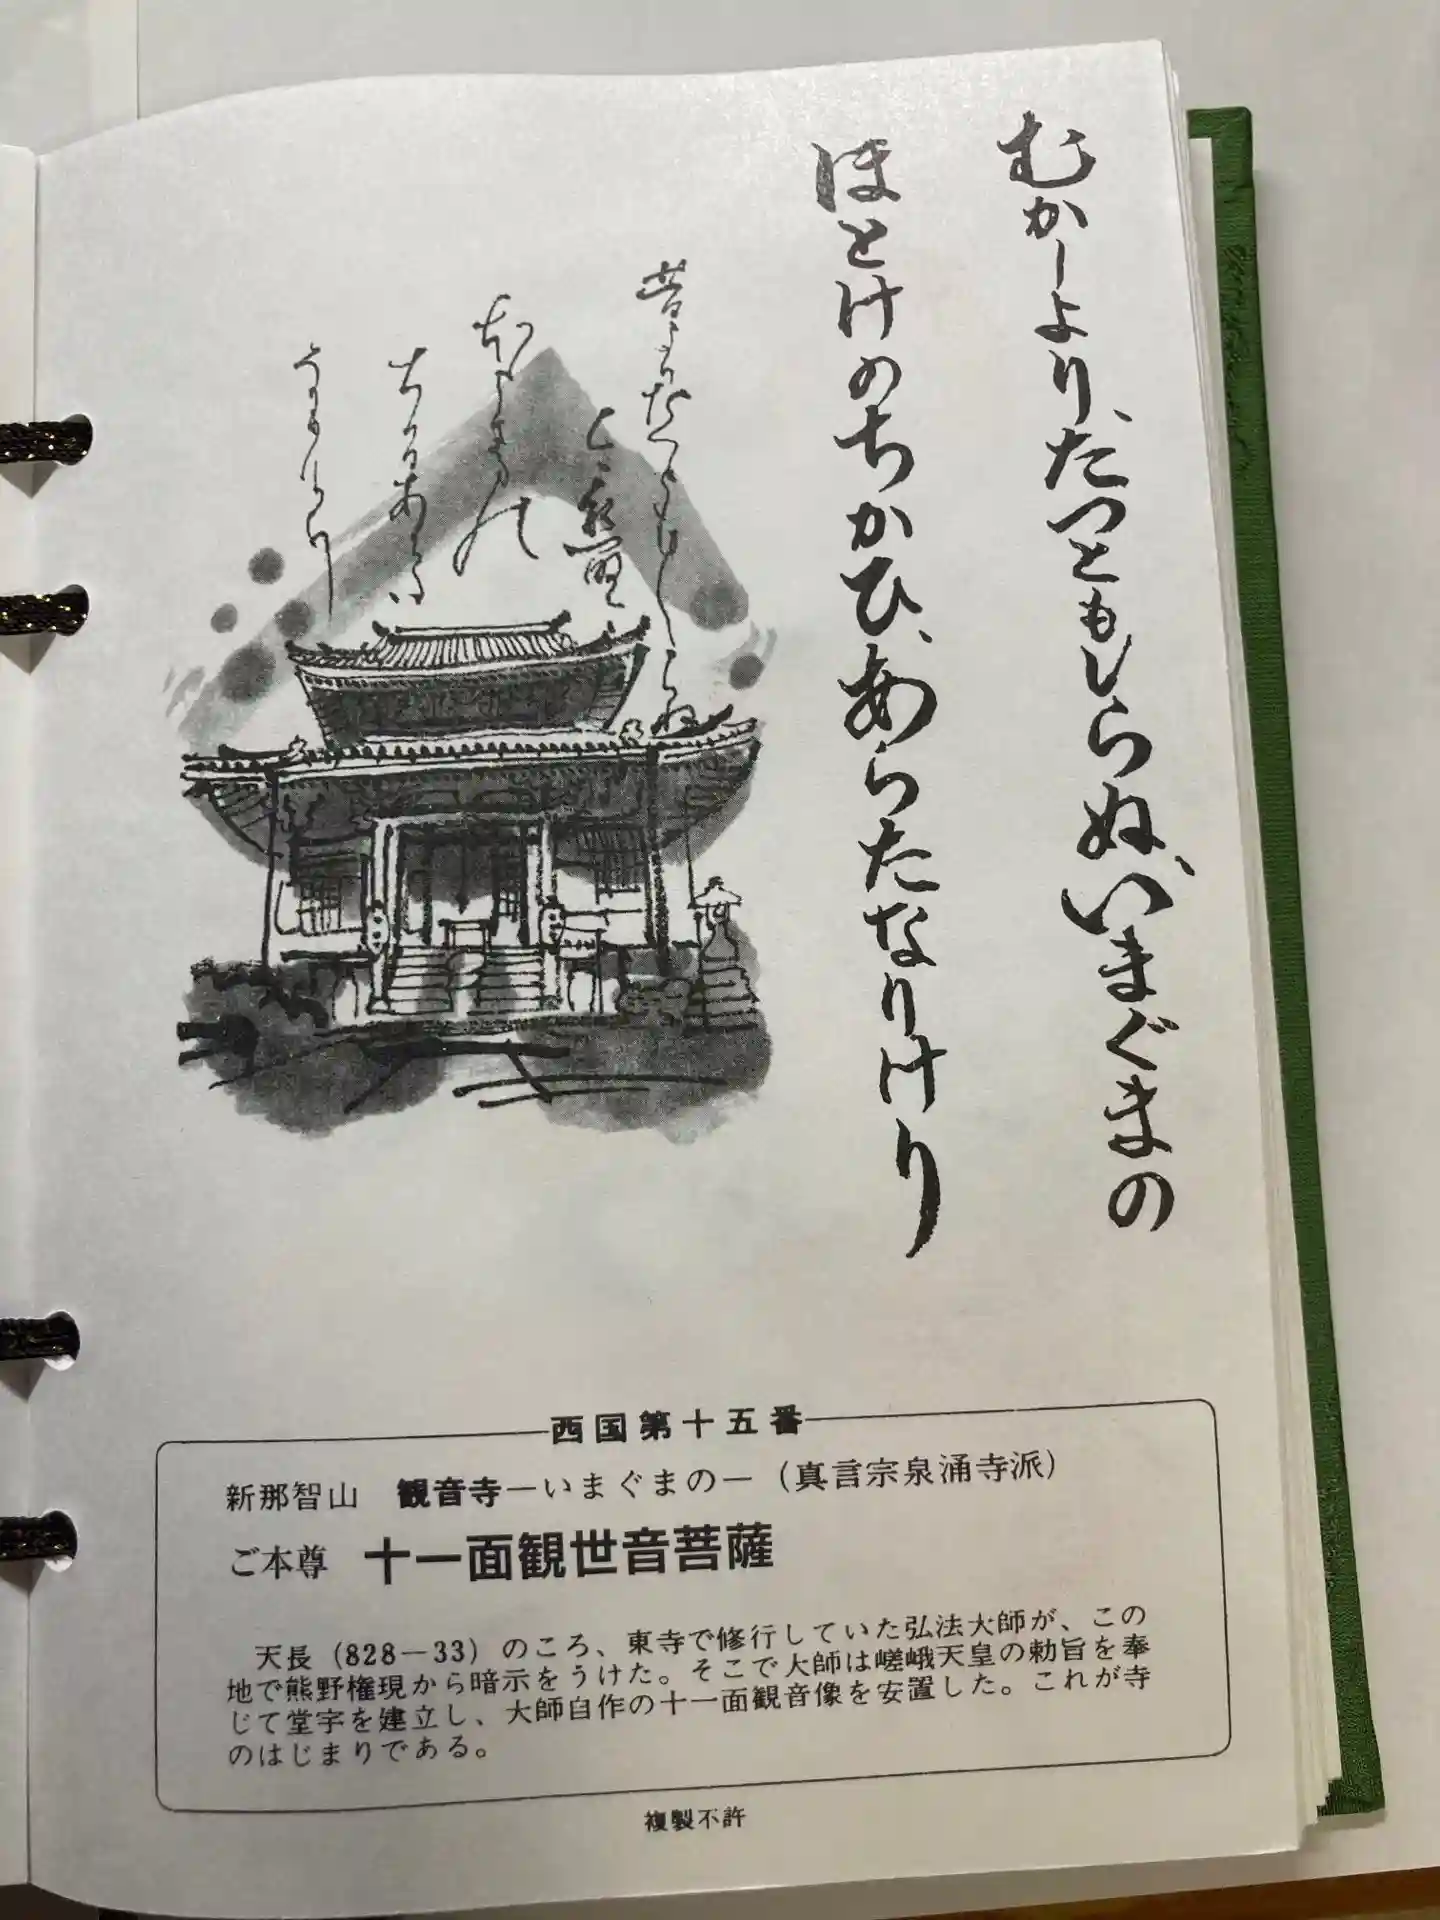 むかしより、たつともしらぬ、いまぐまの
ほとけのちかひ、あらたなりけり
西国第十五番
新那智山　観音寺―いまぐまの―（真言宗泉涌寺派）
ご本尊　十一面観世音菩薩
天長（828－33）のころ、東寺で修行していた弘法大師が、この
地で熊野権現から暗示をうけた。そこで大師は嵯峨天皇の勅旨を奉
じて堂宇を建立し、大師自作の十一面観音像を安置した。これが寺
のはじまりである。
複製不許